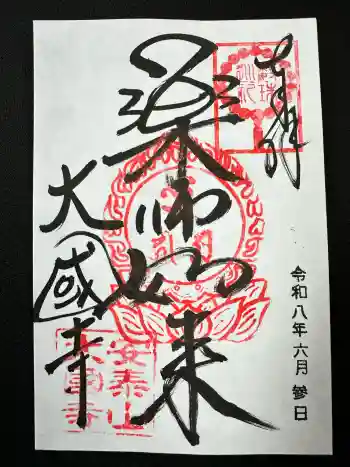 奉拝
薬師如来
大國寺
令和八年六月参日
安泰山
大國寺